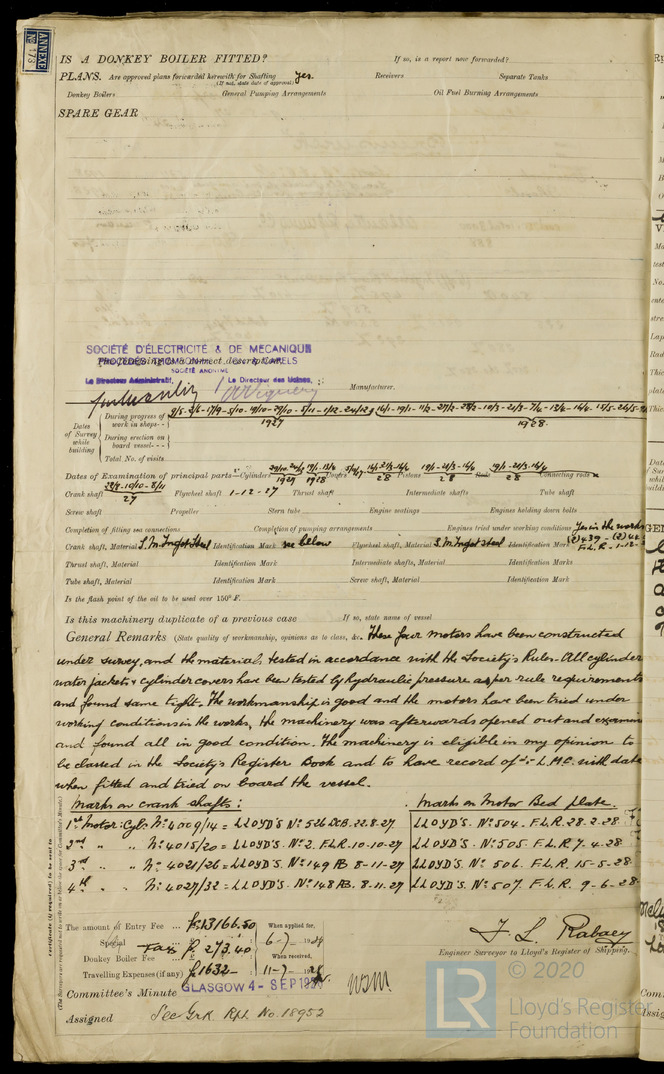 ANNEXE
No 178
IS A DONKEY BOILER FITTED? If so, is a report now forwarded?
PLANS. Are approved plans forwarded herewith for Shafting Yes Receivers Separate Tanks
(If not, state date of approval)
Donkey Boilers General Pumping Arrangements Oil Fuel Burning Arrangements
SPARE GEAR
SOCIÉTÉ D'ÉLECTRICITÉ & DE MECANIQUE
The foregoing is a correct description,
PROCÉDÉS THOMSON & CARELS
SOCIÉTÉ ANONYME
Le Directeur Administratif, Le Directeur des Usines,
Manufacturer.
Dates of Survey while building
During progress of work in shops - -
1927 1928
During erection on board vessel - - -
Total No. of visits
Dates of Examination of principal parts—Cylinders Covers Pistons Rods Connecting rods
1927 1928 28 28 28
Crank shaft 27 Flywheel shaft 1-12-27 Thrust shaft Intermediate shafts Tube shaft
Screw shaft Propeller Stern tube Engine seatings Engines holding down bolts
Completion of fitting sea connections Completion of pumping arrangements Engines tried under working conditions Yes in the works
Crank shaft, Material S.M. Ingot Steel Identification Mark see below Flywheel shaft, Material S.M Ingot steel Identification Mark
F.L.R. - 1-12-
Thrust shaft, Material Identification Mark Intermediate shafts, Material Identification Marks
Tube shaft, Material Identification Mark Screw shaft, Material Identification Mark
Is the flash point of the oil to be used over 150° F.
Is this machinery duplicate of a previous case If so, state name of vessel
General Remarks (State quality of workmanship, opinions as to class, &c. These four motors have been constructed
under survey, and the materials, tested in accordance with the Society's Rules - All cylinder
water jackets & cylinder covers have been tested by hydraulic pressure as per rule requirements
and found same tight. The workmanship is good and the motors have been tried under
working conditions in the works, the machinery was afterwards opened out and examin
and found all in good condition. The machinery is eligible in my opinion to
be classed in the Society's Register Book and to have record of L.M.C. with date
when fitted and tried on board the vessel.
Marks on crank shafts: Marks on Motor Bed plate.
1st Motor: Cyl: No 4009/14 = LLOYD'S No 526 22.8-27 LLOYD'S. No 504. F.L.R. 28-2-28.
2nd " " No 4015/20 = LLOYD'S. No 2. F.L.R. 10-10-27 LLOYD'S. No 505. F.L.R. 7.4-28
3rd " " No 4021/26 = LLOYD'S. No 149 8-11-27 LLOYD'S. No 506. F.L.R. 15-5-28
4th " " No 4027/32 = LLOYD'S. No 148 8.11.27 LLOYD'S. No 507. F.L.R. 9-6-28
Certificate (if required) to be sent to
(The Surveyors are requested not to write on or below the space for Committee's Minute.)
The amount of Entry Fee ... 13166.50 When applied for,
Special 273.40
Donkey Boiler Fee When received,
Travelling Expenses (if any) 1632-
F. L. Rabaey
Engineer Surveyor to Lloyd's Register of Shipping.
Committee's Minute GLASGOW 4 - SEP 1928
Assigned See Grk. Rpt. No. 18952
© 2020
LR
Lloyd's Register
Foundation